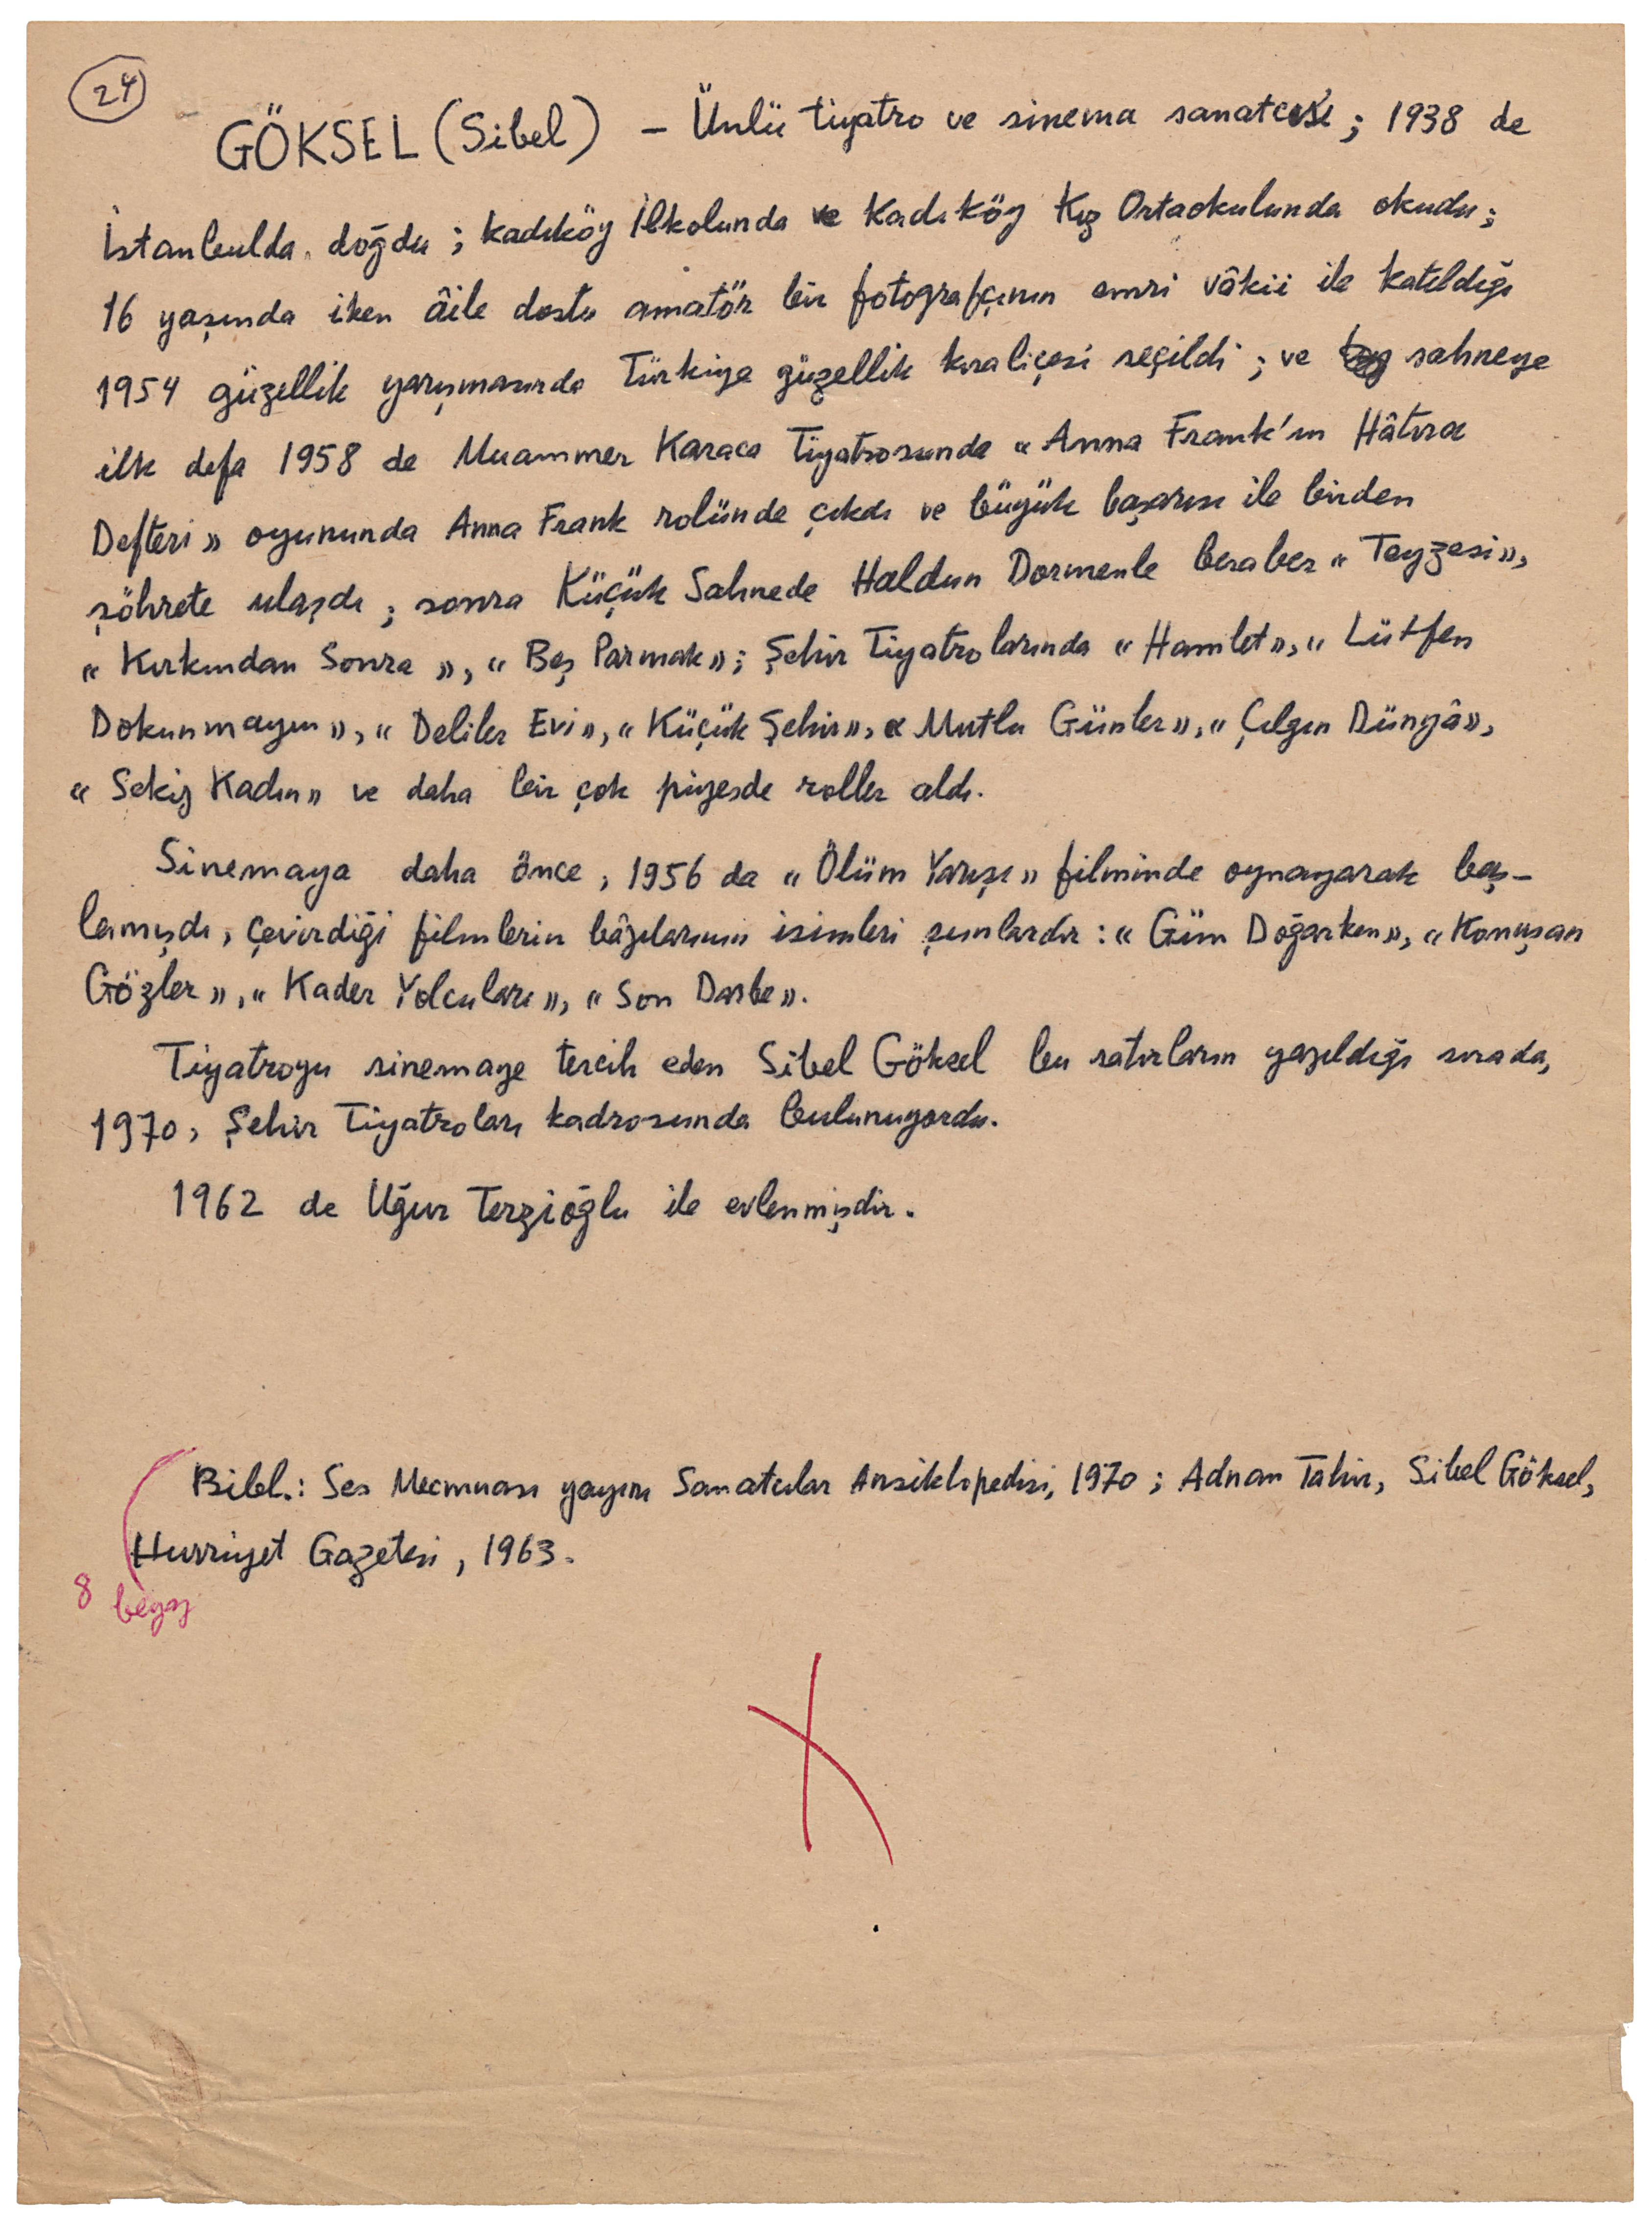 24
GÖKSEL (Sibel) – Ünlü tiyatro ve sinema sanatcısı; 1938 de
İstanbulda doğdu; Kadıköy İlkolunda ve Kadıköy Kız Ortaokulunda okudu;
16 yaşında iken âile dostu amatör bir fotografçının emri vâkii ile katıldığı
1954 güzellik yarışmasında Türkiye güzellik kıraliçesi seçildi; ve sahneye
ilk defa 1958 de Muammer Karaca Tiyatrosunda «Anna Frank'ın Hâtıra
Defteri» oyununda Anna Frank rolünde çıkdı ve büyük başarısı ile birden
şöhrete ulaşdı; sonra Küçük Sahnede Haldun Dormenle beraber «Teyzesi»,
«Kırkından Sonra», «Beş Parmak»; Şehir Tiyatrolarında «Hamlet», «Lütfen
Dokunmayın», «Deliler Evi», «Küçük Şehir», «Mutlu Günler», «Çılgın Dünyâ»,
«Sekiz Kadın» ve daha bir çok piyesde roller aldı.
Sinemaya daha önce, 1956 da «Ölüm Yarışı» filminde oynayarak baş-
lamışdı, çevirdiği filmlerin bâzılarının isimleri şunlardır: «Gün Doğarken», «Konuşan
Gözler», «Kader Yolcuları», «Son Darbe».
Tiyatroyu sinemaye tercih eden Sibel Göksel bu satırların yazıldığı sırada,
1970, Şehir Tiyatroları kadrosunda bulunuyordu.
1962 de Uğur Terzioğlu ile evlenmişdir.
Bibl.: Ses Mecmuası yayını Sanatcılar Ansiklopedisi, 1970; Adnan Tahir, Sibel Göksel,
Hurriyet Gazetesi, 1963.
8 beyaz